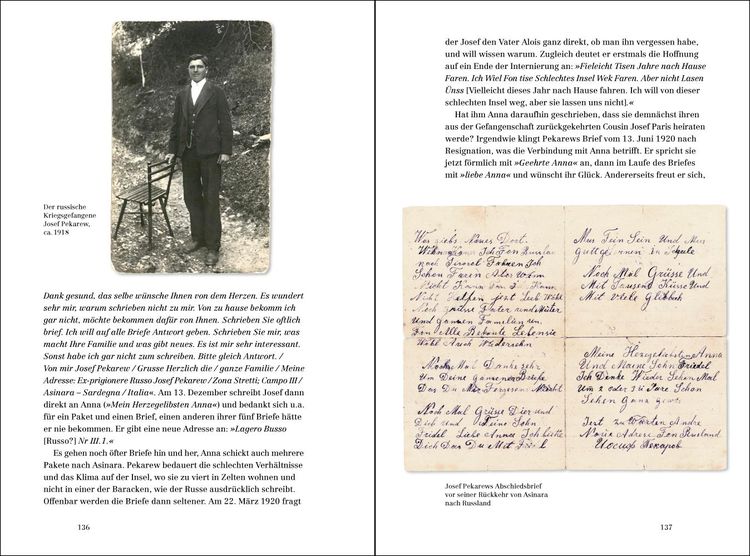 Der russische
Kriegsgefangene
Josef Pekarew,
ca. 1918
Dank gesund, das selbe wünsche Ihnen von dem Herzen. Es wundert
sehr mir, warum schrieben nicht zu mir. Von zu hause bekomm ich
gar nicht, möchte bekommen dafür von Ihnen. Schrieben Sie oftlich
brief. Ich will auf alle Briefe Antwort geben. Schrieben Sie mir, was
macht Ihre Familie und was gibt neues. Es ist mir sehr interessant.
Sonst habe ich gar nicht zum schreiben. Bitte gleich Antwort. /
Von mir Josef Pekarew / Grusse Herzlich die / ganze Familie / Meine
Adresse: Ex-prigionere Russo Josef Pekarew / Zona Stretti; Campo III /
Asinara – Sardegna / Italia«. Am 13. Dezember schreibt Josef dann
direkt an Anna (»Mein Herzegelibstes Anna«) und bedankt sich u.a.
für ein Paket und einen Brief, einen anderen ihrer fünf Briefe hätte
er nie bekommen. Er gibt eine neue Adresse an: »Lagero Busso
[Russo?] Nr III.1.«
Es gehen noch öfter Briefe hin und her, Anna schickt auch mehrere
Pakete nach Asinara. Pekarew bedauert die schlechten Verhältnisse
und das Klima auf der Insel, wo sie zu viert in Zelten wohnen und
nicht in einer der Baracken, wie der Russe ausdrücklich schreibt.
Offenbar werden die Briefe dann seltener. Am 22. März 1920 fragt
136
der Josef den Vater Alois ganz direkt, ob man ihn vergessen habe,
und will wissen warum. Zugleich deutet er erstmals die Hoffnung
auf ein Ende der Internierung an: »Fieleicht Tisen Jahre nach Hause
Faren. Ich Wiel Fon tise Schlechtes Insel Wek Faren. Aber nicht Lasen
Ünss [Vielleicht dieses Jahr nach Hause fahren. Ich will von dieser
schlechten Insel weg, aber sie lassen uns nicht].«
Hat ihm Anna daraufhin geschrieben, dass sie demnächst ihren
aus der Gefangenschaft zurückgekehrten Cousin Josef Paris heiraten
werde? Irgendwie klingt Pekarews Brief vom 13. Juni 1920 nach
Resignation, was die Verbindung mit Anna betrifft. Er spricht sie
jetzt förmlich mit »Geehrte Anna« an, dann im Laufe des Briefes
mit »liebe Anna« und wünscht ihr Glück. Andererseits freut er sich,
Neues Dort.
nach Tirorol Fahren Ich
Schon Faren Aber
Nicht Kann
Nicht Helfen jezt Lieb
Noch grüsse Fater und Muter
Und Gannen Familien un.
Fon Alle Bekante
Wohl Auch Widersehn
Mus Fein Sein Und Mus
Gutt
Noch Mal Grüsse Und
Mit Tausend Küsse Und
Mit Viele
Noch Mal Danke sehr
Um Deine Briefe
Das Du Nicht
Noch Mal Grüse Dier und
Dich Und Deine Sohn
Fridel Liebe Anna Ich bitte
Dich Das Du Mit
Meine Herzgeliebste Anna
Und Maine Sohn Friedel
Ich Danke Wieder Schon Mal
Um 2 oder 3 Jare Schon
Sehen
Jezt zu Andre
Adrese Fon Rusland
Иосиф Пекарев
Josef Pekarews Abschiedsbrief
vor seiner Rückkehr von Asinara
nach Russland
137